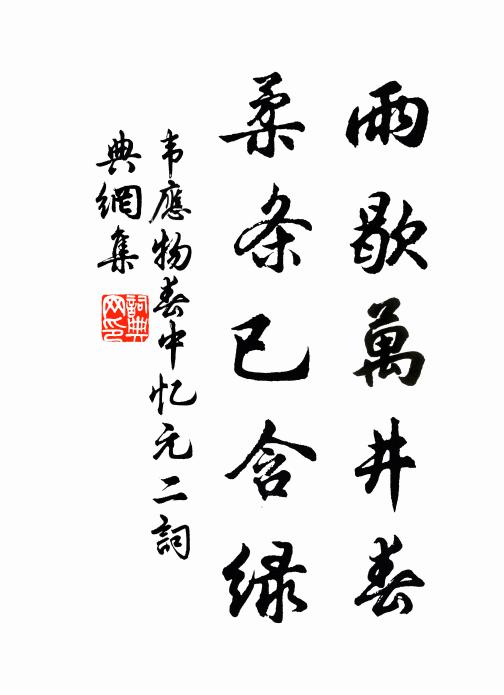 雨歇萬井春
柔条已含绿
韦應物春中忆元二詞
典網集
詞典网印